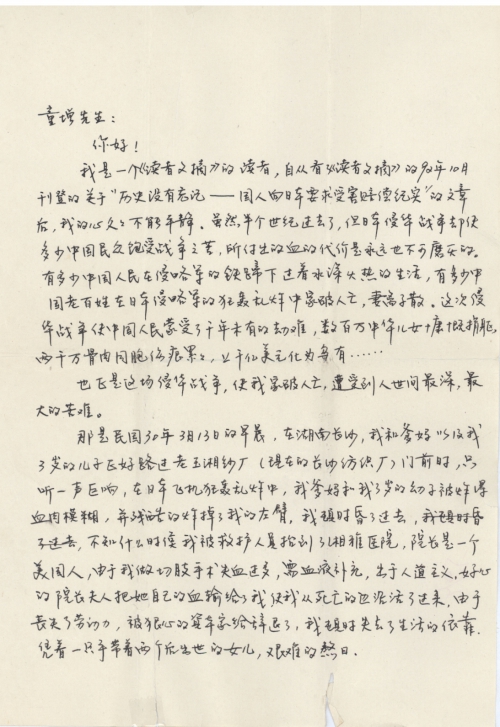 童增先生：
你好！
我是一个《读者文摘》的读者，自从看《读者文摘》的92年10月
刊登的关于"历史没有忘记——国人向日本要求受害赔偿纪实"的文章
后，我的心久久不能平静。虽然，半个世纪过去了，但日本侵华战争却使
多少中国民众饱受战争之苦，所付出的血的代价是永远也不可磨灭的。
有多少中国人民在侵略军的铁蹄下过着水深火热的生活，有多少中
国老百姓在日本侵略军的狂轰乱炸中家破人亡，妻离子散。这次侵
华战争使中国人民蒙受了千年未有的劫难，数百万中华儿女慷慨捐躯，
两千万骨肉同胞伤痕累累，上千亿美元化为乌有……
也正是这场侵华战争，使我家破人亡，遭受到人世间最深，最
大的苦难。
那是民国30年3月13日的早晨，在湖南长沙，我和爹妈以及我
3岁的儿子正好路过老玉湘纱厂（现在的长沙纺织厂）门前时，只
听一声巨响，在日本飞机狂轰乱炸中，我爹妈和我3岁的幼子被炸得
血肉模糊，并残酷的炸掉了我的左臂，我顿时昏了过去，我顿时昏
了过去，不知什么时候我被救护人员抬到了湘雅医院，院长是一个
美国人，由于我做切肢手术失血过多，需血液补充，出于人道主义，好心
的院长夫人把她自己的血输给了我使我从死亡的边沿活了过来，由于
丧失了劳动力，被狠心的资本家给辞退了，我顿时失去了生活的依靠，
凭着一只手带着两个后出世的女儿，艰难的熬日。